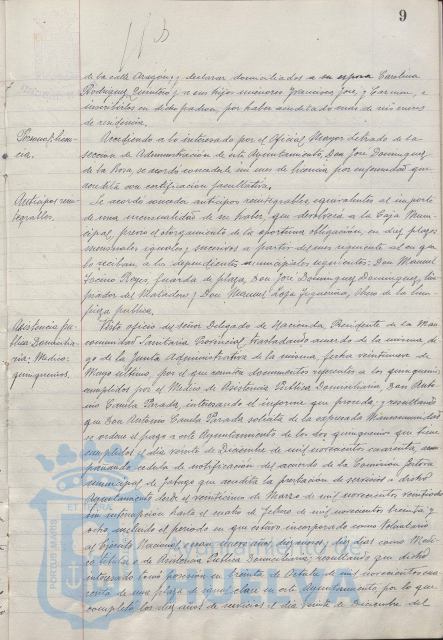 9
de la calle Aragón; y declarar domiciliados a su esposa Carolina
Rodríguez Quintero y a sus hijos menores Francisca, José y Carmen, e
inscribirlos en dicho padrón, por haber acreditado más de seis meses
de residencia.
Personal: licencia.
Accediendo a lo interesado por el Oficial Mayor letrado de la
sección de Administración de este Ayuntamiento, Don José Domínguez
de la Rosa, se acordó concederle un mes de licencia por enfermedad que
acredita con certificación facultativa.
Anticipos reintegrables.
Se acordó conceder anticipos reintegrables equivalentes al importe
de una mensualidad de su haber, que devolverá a la Caja Municipal,
previo el otorgamiento de la oportuna obligación, en diez plazos
mensuales iguales y sucesivos a partir del mes siguiente al en que
lo reciban, a los dependientes municipales siguientes: Don Manuel
Reyes, guarda de plaza, Don José Domínguez Domínguez, limpiador
del Matadero y Don Manuel, Obrero de la limpieza
pública.
Asistencia pública Domiciliaria: Médico: quinquenios.
Visto oficio del señor Delegado de Hacienda, Presidente de la Mancomunidad
Sanitaria Provincial, trasladando acuerdo de la misma
de la Junta Administrativa de la misma, fecha veintinueve de
Mayo último, por el que remite documentos referentes a los quinquenios
cumplidos por el Médico de Asistencia Pública Domiciliaria, Don Antonio
Parada, interesando el informe que proceda; y resultando
que Don Antonio Parada solicita de la expresada Mancomunidad
se ordene el pago a este Ayuntamiento de los dos quinquenios que tiene
cumplidos el día veinte de Diciembre de mil novecientos cuarenta, acompañando
cédula de notificación del acuerdo de la Comisión Gestora
municipal de Jabugo que acredita la prestación de servicio a dicho
Ayuntamiento desde el veinticinco de Marzo de mil novecientos veintiocho
sin interrupción hasta el cuatro de Febrero de mil novecientos treinta y
ocho, incluido el período en que estuvo incorporado como Voluntario
al Ejército Nacional, o sean nueve años, diez meses, diez días como Médico
titular de Asistencia Pública Domiciliaria; resultando que dicho
interesado tomó posesión en treinta de Octubre de mil novecientos cuarenta
de una plaza de igual clase en este Ayuntamiento por lo que
completó los diez años de servicios el día veinte de Diciembre del
ET
PORTUS MARIS